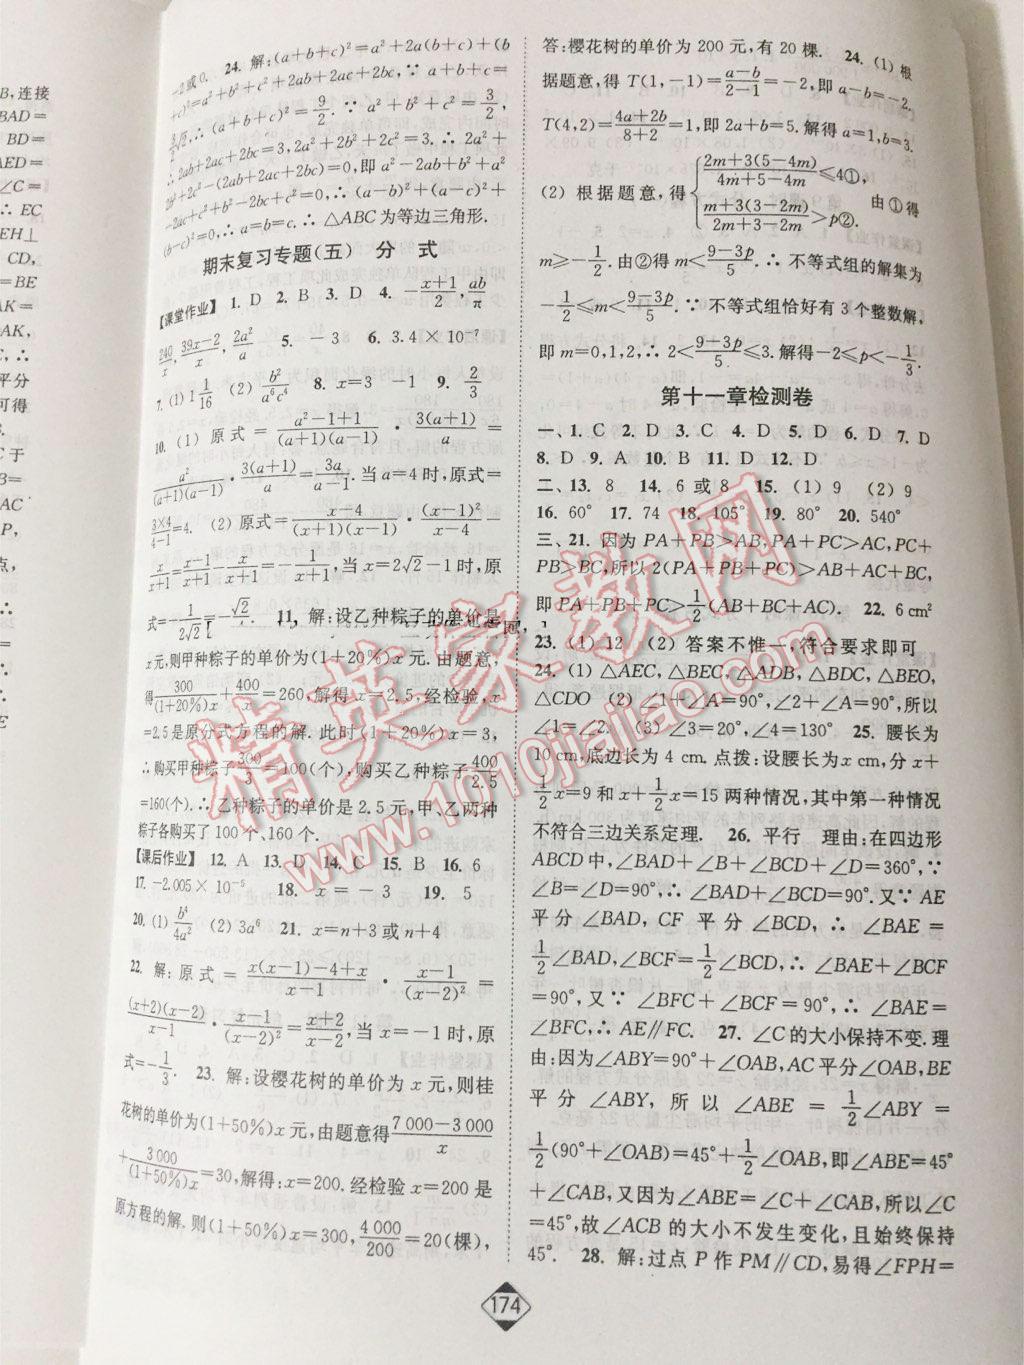 B,连接
BAD=
BD=
AED=
∠C=
∴ EC
EH⊥
CD,
=BE
AK=
AK,
∴
平分
可得
C于
B=
AC
P,
点,
E
-2或0. 24. 解:(a+b+c)²=a²+2a(b+c)+(b
+c)²=a²+b²+c²+2ab+2ac+2bc,∵ a+b+c=
∴(a+b+c)²=9/2. ∵ a²+b²+c²=3/2,
∴ 2ab+2ac+2bc=3,2a²+2b²+2c²=3. ∴ 2a²+
2b²+2c²-(2ab+2ac+2bc)=0,即 a²-2ab+b²+a²
-2ac+c²+b²-2bc+c²=0,∴ (a-b)²+(a-c)²+
(b-c)²=0,∴ a=b=c. ∴ △ABC 为等边三角形.
期末复习专题(五) 分 式
【课堂作业】 1. D 2. B 3. D 4. -(x+1)/2,ab/π
240/x,(39x-2)/x,2a²/a 5. -3 6. 3.4×10⁻⁷
7. (1) 1 1/16 (2) b²/(a⁶c⁴) 8. x=3 -1 9. 2/3
10. (1) 原式=(a²-1+1)/((a+1)(a-1))·3(a+1)/a=
a²/((a+1)(a-1))·3(a+1)/a=3a/(a-1). 当 a=4 时,原式=
3×4/(4-1)=4. (2) 原式=(x-4)/((x+1)(x-1))·(x-1)²/(x-4)-
x/(x+1)=(x-1)/(x+1)-x/(x+1)=-1/(x+1),当 x=2√2-1 时,原
式=-1/(2√2)=-√2/4. 11. 解:设乙种粽子的单价是
x元,则甲种粽子的单价为(1+20%)x 元. 由题意,
得300/((1+20%)x)+400/x=260,解得 x=2.5,经检验,x
=2.5是原分式方程的解. 此时(1+20%)x=3,
∴购买甲种粽子300/3=100(个),购买乙种粽子400/2.5
=160(个). ∴ 乙种粽子的单价是 2.5 元,甲、乙两种
粽子各购买了 100 个、160 个.
【课后作业】 12. A 13. D 14. C 15. B 16. 6
17. -2.005×10⁻⁵ 18. x=-3 19. 5
20. (1) b⁴/(4a²) (2) 3a⁶ 21. x=n+3 或 n+4
22. 解:原式=(x(x-1)-4+x)/(x-1)·(x-1)/(x-2)²=
(x+2)(x-2)/(x-1)·(x-1)/(x-2)²=(x+2)/(x-2),当 x=-1 时,原
式=-1/3. 23. 解:设樱花树的单价为 x 元,则桂
花树的单价为(1+50%)x 元,由题意得(7 000-3 000)/x
+3 000/((1+50%)x)=30,解得:x=200. 经检验 x=200 是
原方程的解. 则(1+50%)x=300,4 000/200=20(棵),
答:樱花树的单价为 200 元,有 20 棵. 24. (1) 根
据题意,得 T(1,-1)=(a-b)/(2-1)=-2,即 a-b=-2.
T(4,2)=(4a+2b)/(8+2)=1,即 2a+b=5. 解得 a=1,b=3.
(2) 根据题意,得{(2m+3(5-4m))/(4m+5-4m)≤4①, (m+3(3-2m))/(2m+3-2m)>p②. 由①得
m≥-1/2. 由②得 m<(9-3p)/5. ∴ 不等式组的解集为
-1/2≤m<(9-3p)/5. ∵ 不等式组恰好有 3 个整数解,
即 m=0,1,2,∴ 2<(9-3p)/5≤3. 解得-2≤p<-1/3.
第十一章检测卷
一、1. C 2. D 3. C 4. D 5. D 6. D 7. D
8. D 9. A 10. B 11. D 12. D
二、13. 8 14. 6 或 8 15. (1) 9 (2) 9
16. 60° 17. 74 18. 105° 19. 80° 20. 540°
三、21. 因为 PA+PB>AB,PA+PC>AC,PC+
PB>BC,所以 2(PA+PB+PC)>AB+AC+BC,
即 PA+PB+PC>1/2(AB+BC+AC). 22. 6 cm²
23. (1) 12 (2) 答案不惟一,符合要求即可
24. (1) △AEC,△BEC,△ADB,△BDC,△BEO,
△CDO (2) ∠1+∠A=90°,∠2+∠A=90°,所以
∠1=∠2. (3) ∠3=∠4=130° 25. 腰长为
10 cm,底边长为 4 cm. 点拨:设腰长为 x cm,分 x+
1/2x=9 和 x+1/2x=15 两种情况,其中第一种情况
不符合三边关系定理. 26. 平行 理由:在四边形
ABCD 中,∠BAD+∠B+∠BCD+∠D=360°,∵
∠B=∠D=90°,∴ ∠BAD+∠BCD=180°. 又∵ AE
平分 ∠BAD, CF 平分 ∠BCD, ∴ ∠BAE =
1/2∠BAD,∠BCF=1/2∠BCD,∴ ∠BAE+∠BCF
=90°,又∵ ∠BFC+∠BCF=90°,∴ ∠BAE=
∠BFC,∴ AE∥FC. 27. ∠C 的大小保持不变. 理
由:因为∠ABY=90°+∠OAB,AC 平分∠OAB,BE
平分 ∠ABY, 所以 ∠ABE = 1/2∠ABY =
1/2(90°+∠OAB)=45°+1/2∠OAB,即∠ABE=45°
+∠CAB,又因为∠ABE=∠C+∠CAB,所以∠C
=45°,故∠ACB 的大小不发生变化,且始终保持
45°. 28. 解:过点 P 作 PM∥CD,易得∠FPH=
174
精英家教网
www.1010jiajiao.com